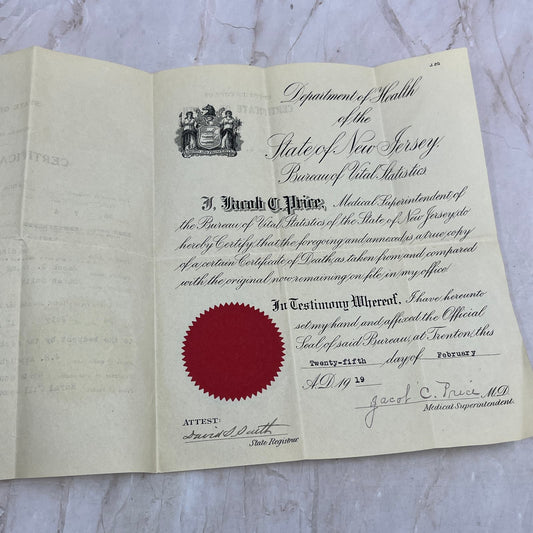 Department of Health
of the
State of New Jersey.
Bureau of Vital Statistics
I, Jacob C. Price, Medical Superintendent of
the Bureau of Vital Statistics of the State of New Jersey, do
hereby Certify, that the foregoing and annexed is a true copy
of a certain Certificate of Death, as taken from and compared
with the original now remaining on file in my office
In Testimony Whereof, I have hereunto
set my hand and affixed the Official
Seal of said Bureau, at Trenton, this
Twenty-fifth day of February
A.D. 1919
Jacob C. Price M.D.
Medical Superintendent.
ATTEST:
David S. South
State Registrar